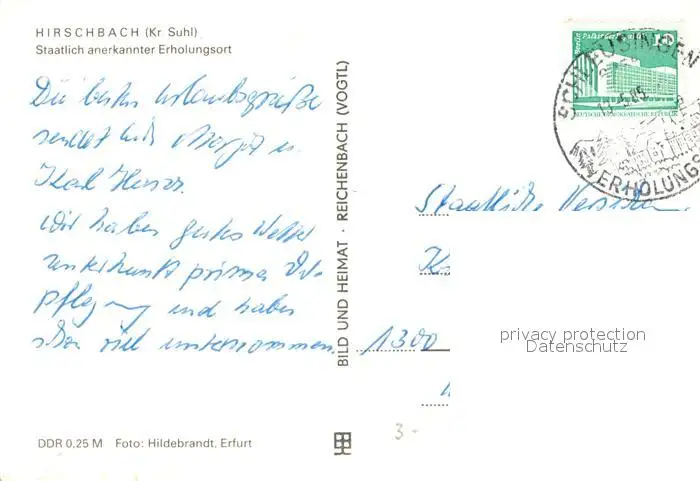 HIRSCHBACH (Kr. Suhl)
Staatlich anerkannter Erholungsort
Die besten Urlaubsgrüße
sendet Euch Margit u.
Karl
Wir haben gutes Wetter
unterkunft prima
pflegung und haben
schon viel unternommen.
BILD UND HEIMAT · REICHENBACH (VOGTL)
DDR 0,25 M Foto: Hildebrandt, Erfurt
SCHLEUSINGEN
ERHOLUNGS
10
DEUTSCHE DEMOKRATISCHE REPUBLIK
Staatliche
1300
privacy protection
Datenschutz
3-